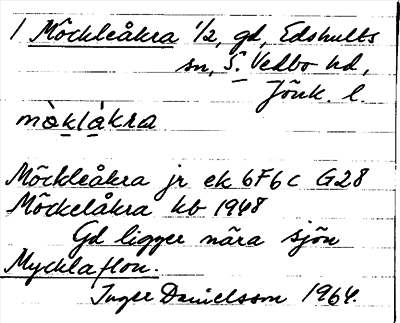 1 Möckleåkra 1/2, gd, Edshults
sn, S. Vedbo hd,
Jönk. l.
mò̀klákra
Möckleåkra jr ek 6F6c G28
Möckelåkra kb 1948
Gd ligger nära sjön
Mycklaflon.
Inger Danielsson 1964.